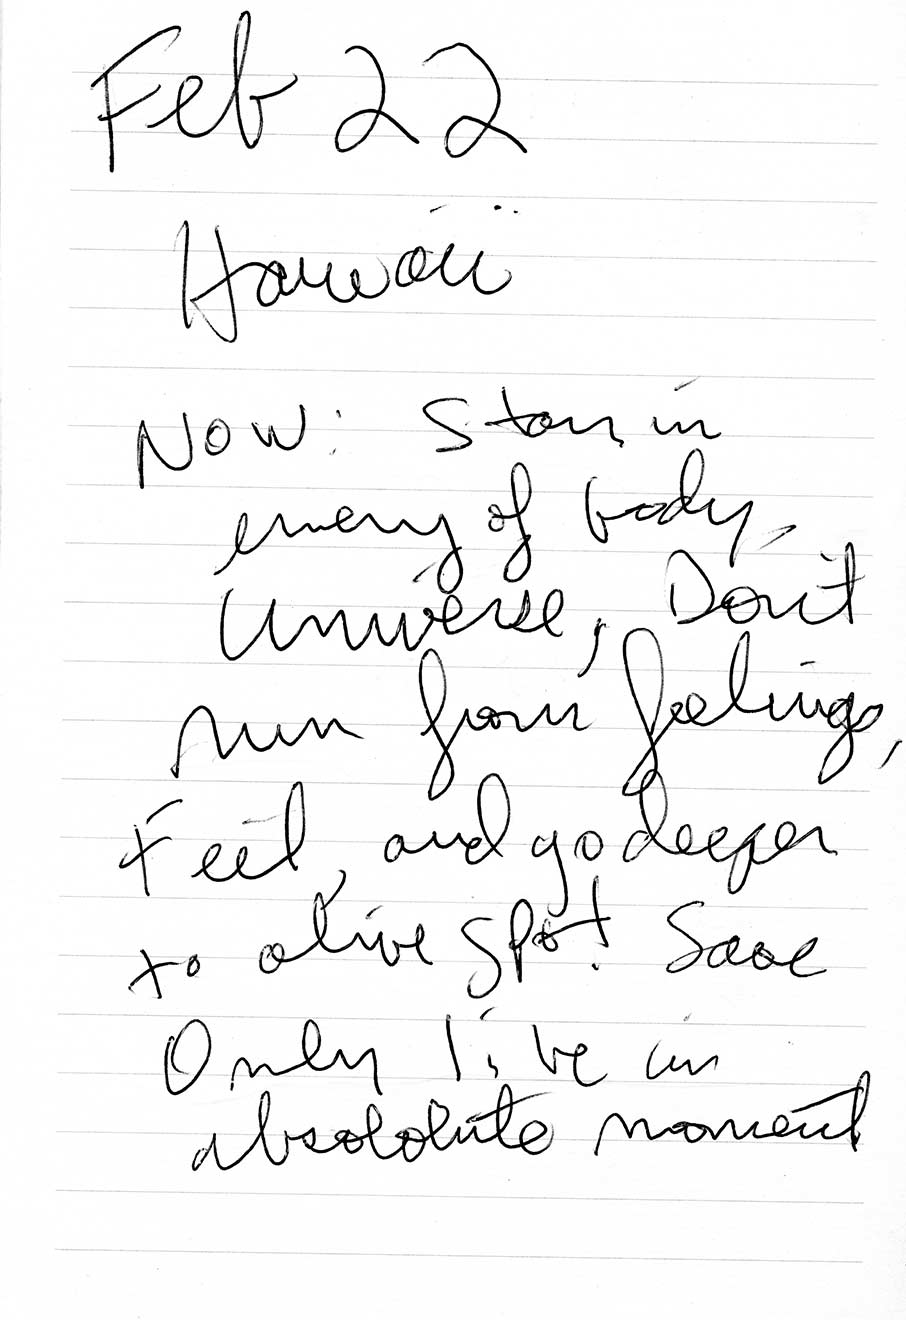 Feb 22
Hawaii
Now: Stay in
energy of body,
Universe, Don't
run from feelings,
Feel, and go deeper
to alive spot!
Only live in
absololute moment